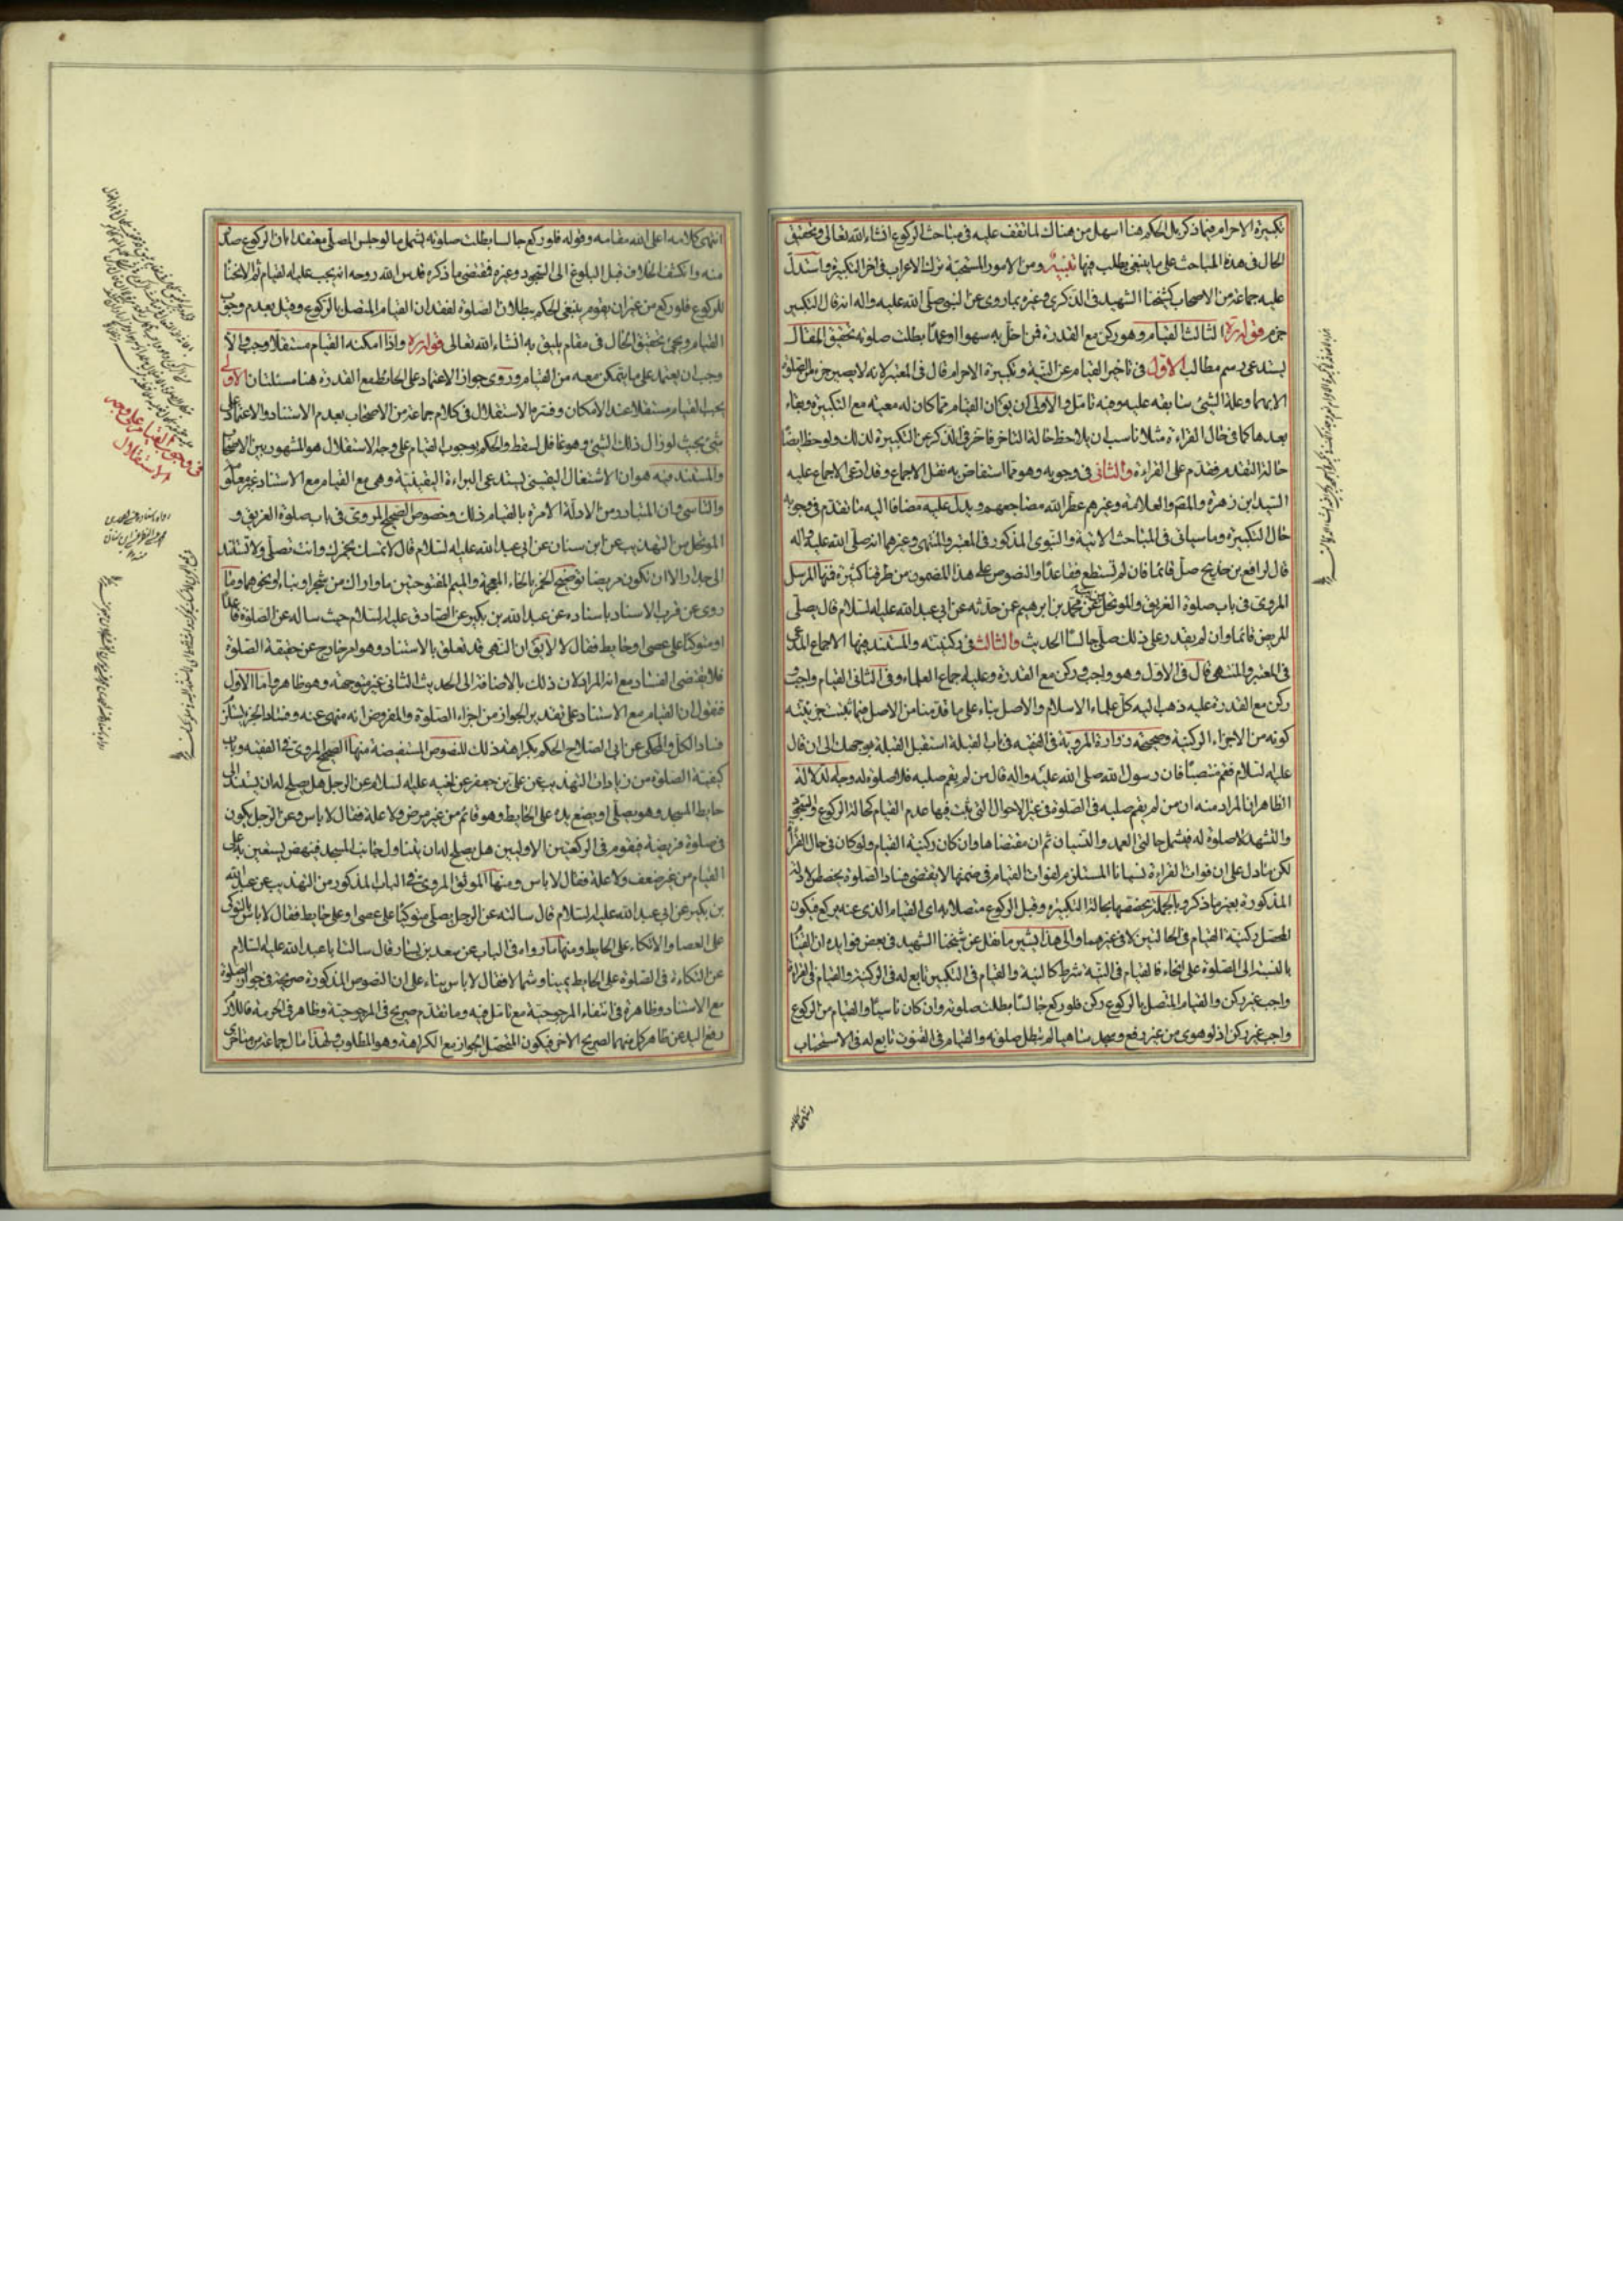 تكبيرة الاحرام فيما ذكر بل الحكم هنا اسهل من هناك لما تقف عليه فى مباحث الركوع انشاء الله تعالى وتحقيق
الحال فى هذه المباحث على ما ينبغى يطلب فيها تنبيه ومن الامور المستحبة ترك الاعراب فى اخر التكبيرة واستدل
عليه جماعة من الاصحاب كشيخنا الشهيد فى الذكرى وغيره بما روى عن النبى صلى الله عليه واله انه قال التكبير
جزم قوله ره الثالث القيام وهو ركن مع القدرة فمن اخل به سهوا او عمدا بطلت صلوته تحقيق المقال
يستدعى رسم مطالب الاول فى تاخير القيام عن النية وتكبيرة الاحرام قال فى المعتبر لانه لا يصير جزء من الصلوة
الا بهما وعلة الشئ سابقه عليه وفيه تامل والاولى ان يق ان القيام لما كان له معية مع التكبيرة وبقاء
بعدها كما فى حال القراءة مثلا ناسب ان يلاحظ حالة التاخر فاخر فى الذكر عن التكبيرة لذلك ولوحظ ايضا
حالة التقدم فقدم على القراءة والثانى فى وجوبه وهو مما استفاض به نقل الاجماع وقد ادعى الاجماع عليه
السيد ابن زهرة والمصـ والعلامة وغيرهم عطر الله مضاجعهم ويدل عليه مضافا اليه ما تقدم فى وجوبه
حال التكبيرة وما سياتى فى المباحث الاتية والنبوى المذكور فى المعتبر والمنتهى وغيرهما انه صلى الله عليه واله
قال لرافع بن خديج صل قائما فان لم تستطع فقاعدا والنصوص على هذا المضمون من طرقنا كثيرة فمنها المرسل
المروى فى باب صلوة الغريق والموتحل عن محمد بن ابرهيم عمن حدثه عن ابى عبد الله عليه السلام قال يصلى
المريض قائما وان لم يقدر على ذلك صلى جالسا الحديث والثالث فى ركنيته والمستند فيها الاجماع المدعى
فى المعتبر والمنتهى قال فى الاول وهو واجب وركن مع القدرة وعليه جماع العلماء وفى الثانى القيام واجب
ركن مع القدرة عليه ذهب اليه كل علماء الاسلام والاصل بناء على ما قدمنا من الاصل فيما ثبتت جزئيته
كونه من الاجزاء الركنية وصحيحة زرارة المروية فى الفقيه فى باب القبلة استقبل القبلة بوجهك الى ان قال
عليه السلام فقم منتصبا فان رسول الله صلى الله عليه واله قال من لم يقم صلبه فلا صلوة له وجه الدلالة
الظاهر ان المراد منه ان من لم يقم صلبه فى الصلوة فى غير الاحوال التى يثبت فيها عدم القيام كحالة الركوع والسجود
والتشهد لا صلوة له فيشمل حالتى العمد والنسيان ثم ان مقتضاها وان كان ركنية القيام ولو كان فى حال القراءة
لكن ما دل على ان فوات القراءة نسيانا المستلزم لفوات القيام فى ضمنها لا يقتضى فساد الصلوة يخصص الادلة
المذكورة بغير ما ذكر وبالجملة يخصصها بحالة التكبيرة وقبل الركوع متصلا به اى القيام الذى عنه يركع فيكون
المحصل ركنية القيام فى الحالتين لا فى غيرهما والى هذا يشير ما نقل عن شيخنا الشهيد فى بعض فوايده ان القيام
بالنسبة الى الصلوة على انحاء فالقيام فى النية شرط كالنية والقيام فى التكبير تابع له فى الركنية والقيام فى القراءة
واجب غير ركن والقيام المتصل بالركوع ركن فلو ركع جالسا بطلت صلوته وان كان ناسيا والقيام من الركوع
واجب غير ركن اذ لو هوى من غير رفع وسجد ساهيا لم تبطل صلوته والقيام فى القنوت تابع له فى الاستحباب
انتهى كلامه
انتهى كلامه اعلى الله مقامه وقوله فلو ركع جالسا بطلت صلوته يشمل ما لو جلس المصلى معتقدا بان الركوع صدر
منه وانكشف الخلاف قبل البلوغ الى السجود وغيره فمقتضى ما ذكره قدس الله روحه انه يجب عليه القيام ثم الانحناء
للركوع فلو ركع من غير ان يقوم ينبغى الحكم ببطلان الصلوة لفقدان القيام المتصل بالركوع وقيل بعدم وجوب
القيام ويجئ تحقيق الحال فى مقام يليق به انشاء الله تعالى قوله ره واذا امكنه القيام مستقلا وجب والا
وجب ان يعتمد على ما يتمكن معه من القيام وروى جواز الاعتماد على الحائط مع القدرة هنا مسئلتان الاولى
يجب القيام مستقلا عند الامكان وفسر الاستقلال فى كلام جماعة من الاصحاب بعدم الاستناد والاعتماد على
شئ بحيث لو زال ذلك الشئ وهو غافل لسقط والحكم بوجوب القيام على وجه الاستقلال هو المشهور بين الاصحاب
والمستند فيه هو ان الاشتغال اليقينى يستدعى البراءة اليقينية وهى مع القيام مع الاستناد غير معلوم
والتاسى وان المتبادر من الادلة الامرة بالقيام ذلك وخصوص الصحيح المروى فى باب صلوة الغريق و
الموتحل من التهذيب عن ابن سنان عن ابى عبد الله عليه السلام قال لا تمسك بخمرك وانت تصلى ولا تستند
الى جدار الا ان تكون مريضا توضيح الخمر بالخاء المعجمة والميم المفتوحتين ما واراك من شجر او بناء او نحوهما وما
روى عن قرب الاسناد باسناده عن عبد الله بن بكير عن الصادق عليه السلام حيث ساله عن الصلوة قاعدا
او متوكئا على عصى او حايط فقال لا لا يق ان النهى قد تعلق بالاستناد وهو امر خارج عن حقيقة الصلوة
فلا يقتضى الفساد مع انه المراد لان ذلك بالاضافة الى الحديث الثانى غير متوجه وهو ظاهر واما الاول
فنقول ان القيام مع الاستناد على تقدير الجواز من اجزاء الصلوة والمفروض انه منهى عنه وفساد الجزء يستلزم
فساد الكل والمحكى عن ابى الصلاح الحكم بكراهة ذلك للنصوص المستفيضة منها الصحيح المروى فى الفقيه وباب
كيفية الصلوة من زيادات التهذيب عن على بن جعفر عن اخيه عليه السلام عن الرجل هل يصلح له ان يستند الى
حايط المسجد وهو يصلى او يضع يده على الحايط وهو قائم من غير مرض ولا علة فقال لا باس وعن الرجل يكون
فى صلوة فريضة فيقوم فى الركعتين الاوليين هل يصلح له ان يتناول جانب المسجد فينهض يستعين به على
القيام من غير ضعف ولا علة فقال لا باس ومنها الموثق المروى فى الباب المذكور من التهذيب عن عبد الله
بن بكير عن ابى عبد الله عليه السلام قال سالته عن الرجل يصلى متوكئا على عصى او على حايط فقال لا باس بالتوكى
على العصا والاتكاء على الحايط ومنها ما رواه فى الباب عن سعيد بن يسار قال سالت ابا عبد الله عليه السلام
عن التكاءة فى الصلوة على الحايط يمينا وشمالا فقال لا باس بناء على ان النصوص المذكورة صريحة فى جواز الصلوة
مع الاستناد وظاهرة فى انتفاء المرجوحية مع تامل فيه وما تقدم صريح فى المرجوحية وظاهر فى الحرمة فاللازم
رفع اليد عن ظاهر كل منهما لصريح الاخر فيكون المتحصل الجواز مع الكراهة وهو المطلوب ولهذا مال جماعة من متاخرى
فى وجوب القيام على وجه
الاستقلال